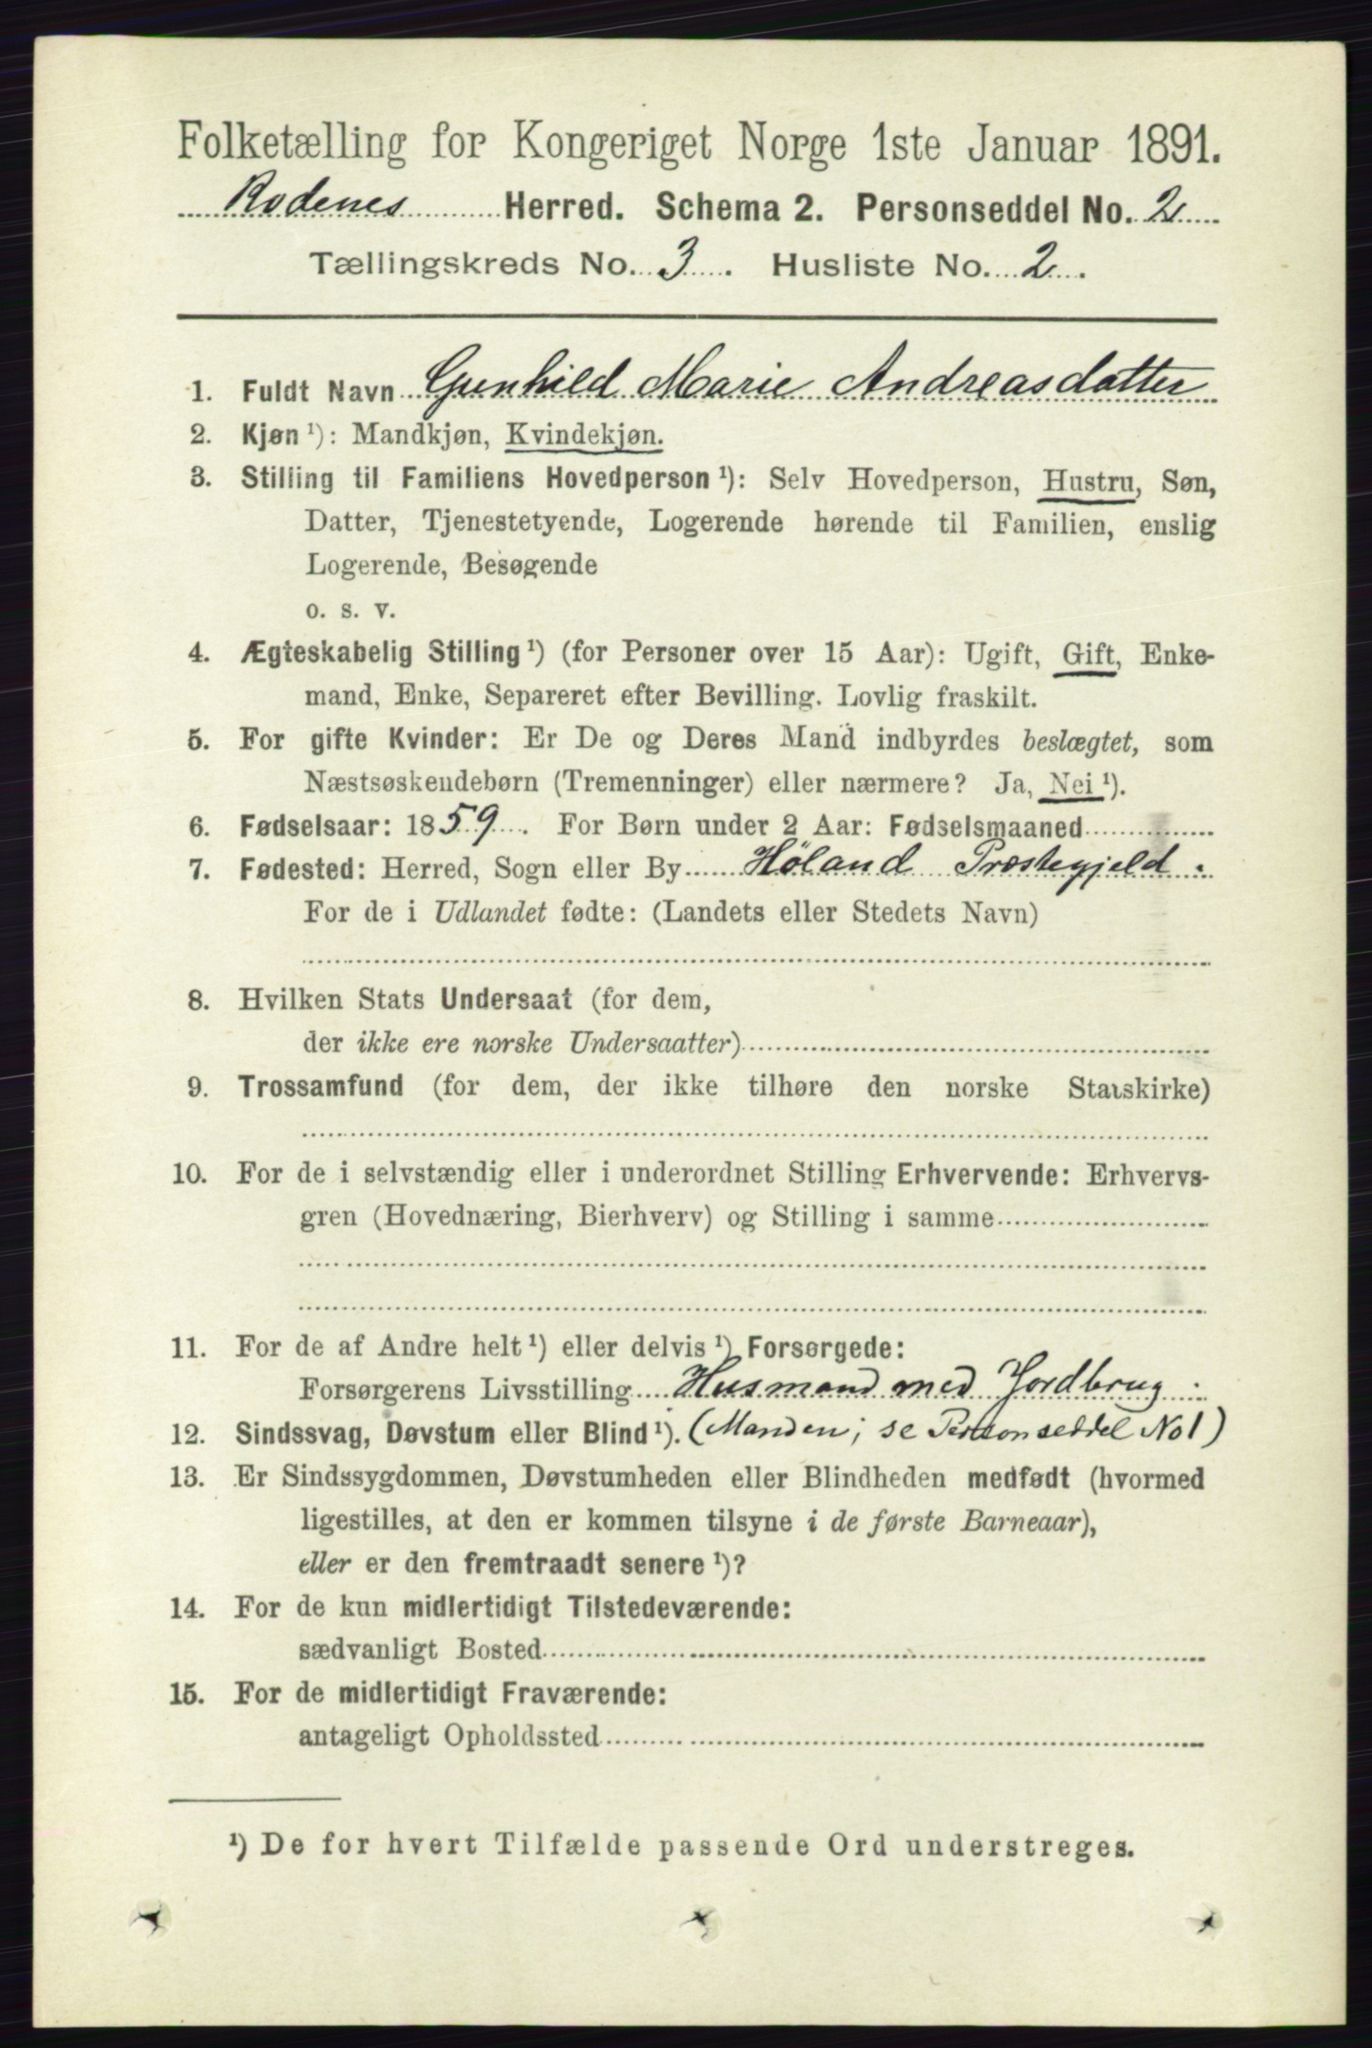 Folketælling for Kongeriget Norge 1ste Januar 1891.
Rødenes Herred. Schema 2. Personseddel No. 2
Tællingskreds No. 3. Husliste No. 2.
1. Fuldt Navn Gunhild Marie Andreasdatter
2. Kjøn ¹): Mandkjøn, Kvindekjøn.
3. Stilling til Familiens Hovedperson ¹): Selv Hovedperson, Hustru, Søn,
Datter, Tjenestetyende, Logerende hørende til Familien, enslig
Logerende, Besøgende
o. s. v.
4. Ægteskabelig Stilling ¹) (for Personer over 15 Aar): Ugift, Gift, Enke-
mand, Enke, Separeret efter Bevilling. Lovlig fraskilt.
5. For gifte Kvinder: Er De og Deres Mand indbyrdes beslægtet, som
Næstsøskendebørn (Tremenninger) eller nærmere? Ja, Nei ¹).
6. Fødselsaar: 1859. For Børn under 2 Aar: Fødselsmaaned
7. Fødested: Herred, Sogn eller By Höland Præstegjeld.
For de i Udlandet fødte: (Landets eller Stedets Navn)
8. Hvilken Stats Undersaat (for dem,
der ikke ere norske Undersaatter)
9. Trossamfund (for dem, der ikke tilhøre den norske Statskirke)
10. For de i selvstændig eller i underordnet Stilling Erhvervende: Erhvervs-
gren (Hovednæring, Bierhverv) og Stilling i samme
11. For de af Andre helt ¹) eller delvis ¹) Forsørgede:
Forsørgerens Livsstilling Husmand med Jordbrug.
12. Sindssvag, Døvstum eller Blind ¹). (Manden; se Personseddel No 1)
13. Er Sindssygdommen, Døvstumheden eller Blindheden medfødt (hvormed
ligestilles, at den er kommen tilsyne i de første Barneaar),
eller er den fremtraadt senere ¹)?
14. For de kun midlertidigt Tilstedeværende:
sædvanligt Bosted
15. For de midlertidigt Fraværende:
antageligt Opholdssted
¹) De for hvert Tilfælde passende Ord understreges.